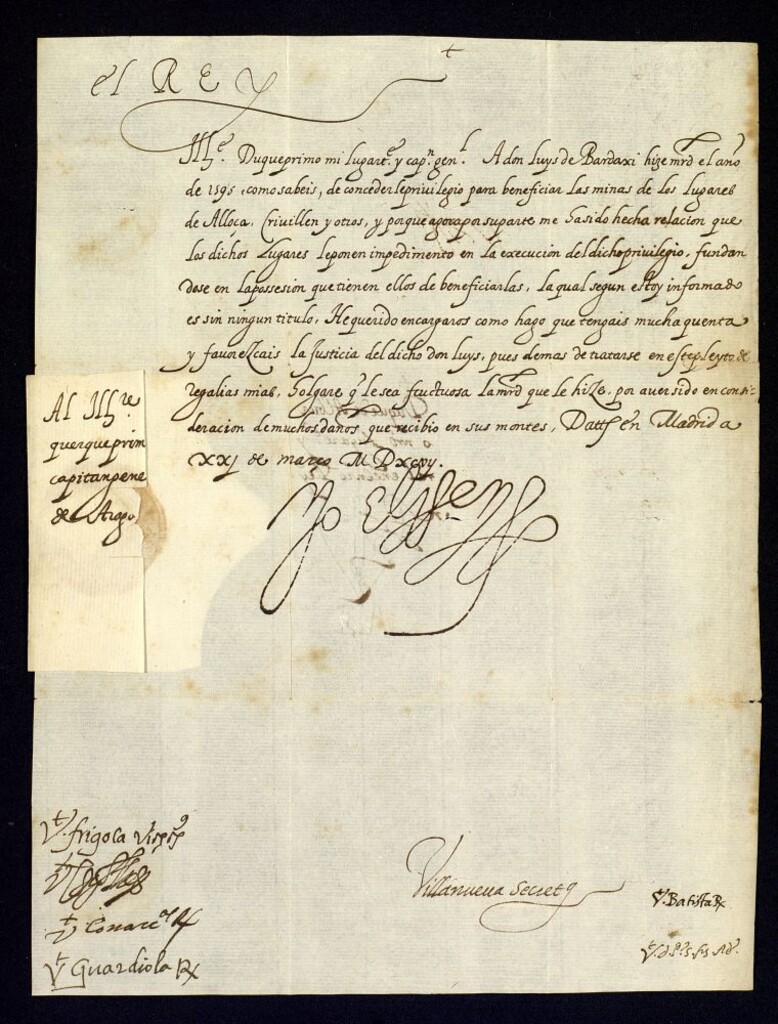 el REY
Ill.e Duque primo mi lugart.e y cap.n gen.l A don luys de Bardaxi hize mrd el año
de 1595, como sabeis, de concederle privilegio para beneficiar las minas de los Lugares
de Alloça, Crivillen y otros, y porque agora por su parte me ha sido hecha relacion que
los dichos Lugares le ponen impedimento en la execucion del dicho privilegio, fundan
dose en la possesion que tienen ellos de beneficiarlas, la qual segun estoy informado
es sin ningun titulo, He querido encargaros como hago que tengais mucha quenta
y favorezcais la Justicia del dicho don Luys, pues demas de tratarse en este pleyto de
regalias mias, holgare q̃ le sea fructuosa la mrd que le hize, por aver sido en consi-
deracion de muchos daños que recibio en sus montes, Datt. en Madrid a
XXj de março M D xcvij.
Yo El
Al Ill.re
capitan gene
de Arago
V.t frigola Vice
V.t
V.t
V.t Guardiola R
Villanueva Secret
V.t Batista R
V.t